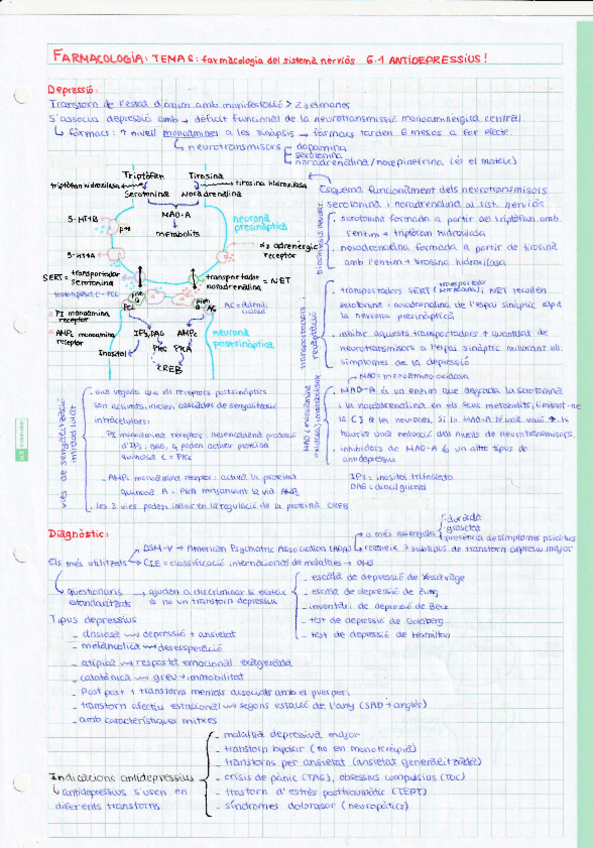 FARMACOLOGIA: TEMA 6: farmacologia del sistema nerviós 6.1 ANTIDEPRESSIUS!
Depressió:
Transtorn de l'estat d'ànim amb manifestació > 2 setmanes
S'associa depressió amb → dèficit funcional de la neurotransmissió monoaminèrgica central.
↳ fàrmacs: ↑ nivell monoamines a les sinapsis → fàrmacs tarden 6 mesos a fer efecte.
↳ neurotransmissors
dopamina
serotonina
noradrenalina/norepinefrina (és el mateix)
Triptòfan Tirosina
triptòfan hidroxilasa tirosina hidroxilasa
Serotonina Noradrenalina
MAO-A
metabolits
5-HT1B
neurona presinàptica
5-HT1A
α2 adrenèrgic receptor
SERT = transportador serotonina
transportador noradrenalina = NET
PI monoamina receptor
AMPc monoamina receptor
PLC AC
IP3, DAG AMPc
neurona postsinàptica
Inositol PKC PKA
CREB
Esquema funcionament dels neurotransmissors
serotonina i noradrenalina al sist. nerviós
. serotonina formada a partir del triptòfan amb
l'enzim → triptòfan hidroxilasa
. noradrenalina formada a partir de tirosina
amb l'enzim → tirosina hidroxilasa
transportadors recaptació
. transportadors SERT (serotonina) i NET recullen
serotonina i noradrenalina de l'espai sinàptic cap a
la neurona presinàptica
. inhibir aquests transportadors → quantitat de
neurotransmissors a l'espai sinàptic millorant els
símptomes de la depressió
MAO = monoamino oxidasa
. MAO-A és un enzim que degrada la serotonina
i la noradrenalina en els seus metabolits,
. inhibidors de MAO-A és un altre tipus de
antidepressiu
IP3 = inositol trifosfato
DAG = diacilglicerol
vies de senyalització intracelular
. una vegada que els receptors postsinàptics
són activats, inicien cascades de senyalització
intracelulars:
. PI monoamina receptor: desencadena producció
d'IP3, DAG, q poden activar proteïna
quinasa C = PKC
- AMPc monoamina receptor: activa la proteïna
quinasa A = PKA mitjançant la via AMPc
. les 2 vies poden influir en la regulació de la proteïna CREB
Diagnòstic:
- durada
- gravetat
- presència de símptomes psicòtics
DSM-V → American Psychiatric Association (APA)
→ subtipus de transtorn depressiu major
Els més utilitzats CIE = classificació internacional de malalties → OMS
qüestionaris estandaritzats → ajuden a discriminar si existeix
o no un transtorn depressiu
- escala de depressió de Yesavage
- escala de depressió de Zung
- inventari de depressió de Beck
- test de depressió de Goldberg
- test de depressió de Hamilton
Tipus depressius
- ansiosa → depressió + ansietat
- melancòlica → desesperació
- atípica → resposta emocional exagerada
- catatònica → greu → immobilitat
- Post part i transtorns mentals associats amb el puerperi
- transtorn afectiu estacional → segons estació de l'any (SAD → anglès)
- amb característiques mixtes
Indicacions antidepressius
↳ antidepressius s'usen en
diferents transtorns
- malaltia depressiva major
- transtorn bipolar (no en monoteràpia)
- transtorns per ansietat (ansietat generalitzada)
- crisis de pànic (TAG), obsessius compulsius (TOC)
- trastorn d'estrès posttraumàtic (TEPT)
- síndromes dolorosos (neuropàtics)